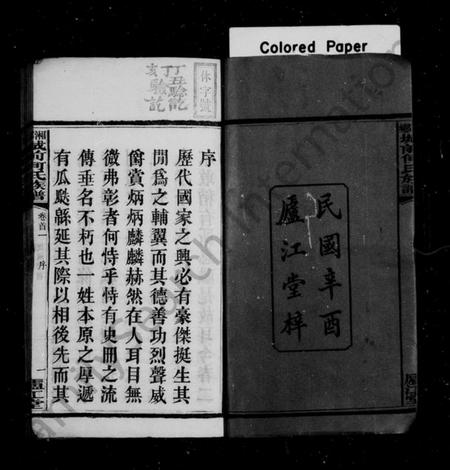 Colored Paper
民國辛酉
廬江堂梓
休字號
丁丑驗訖
丁亥驗訖
序
歷代國家之興必有豪傑挺生其
間為之輔翼而其德善功烈聲威
爵賞炳炳麟麟赫然在人耳目無
微弗彰者何恃乎恃有史冊之流
傳垂名不朽也一姓本原之厚遞
有瓜瓞緜延其際以相後先而其
湘鄉城南何氏族譜
卷首一
序
一
廬江堂